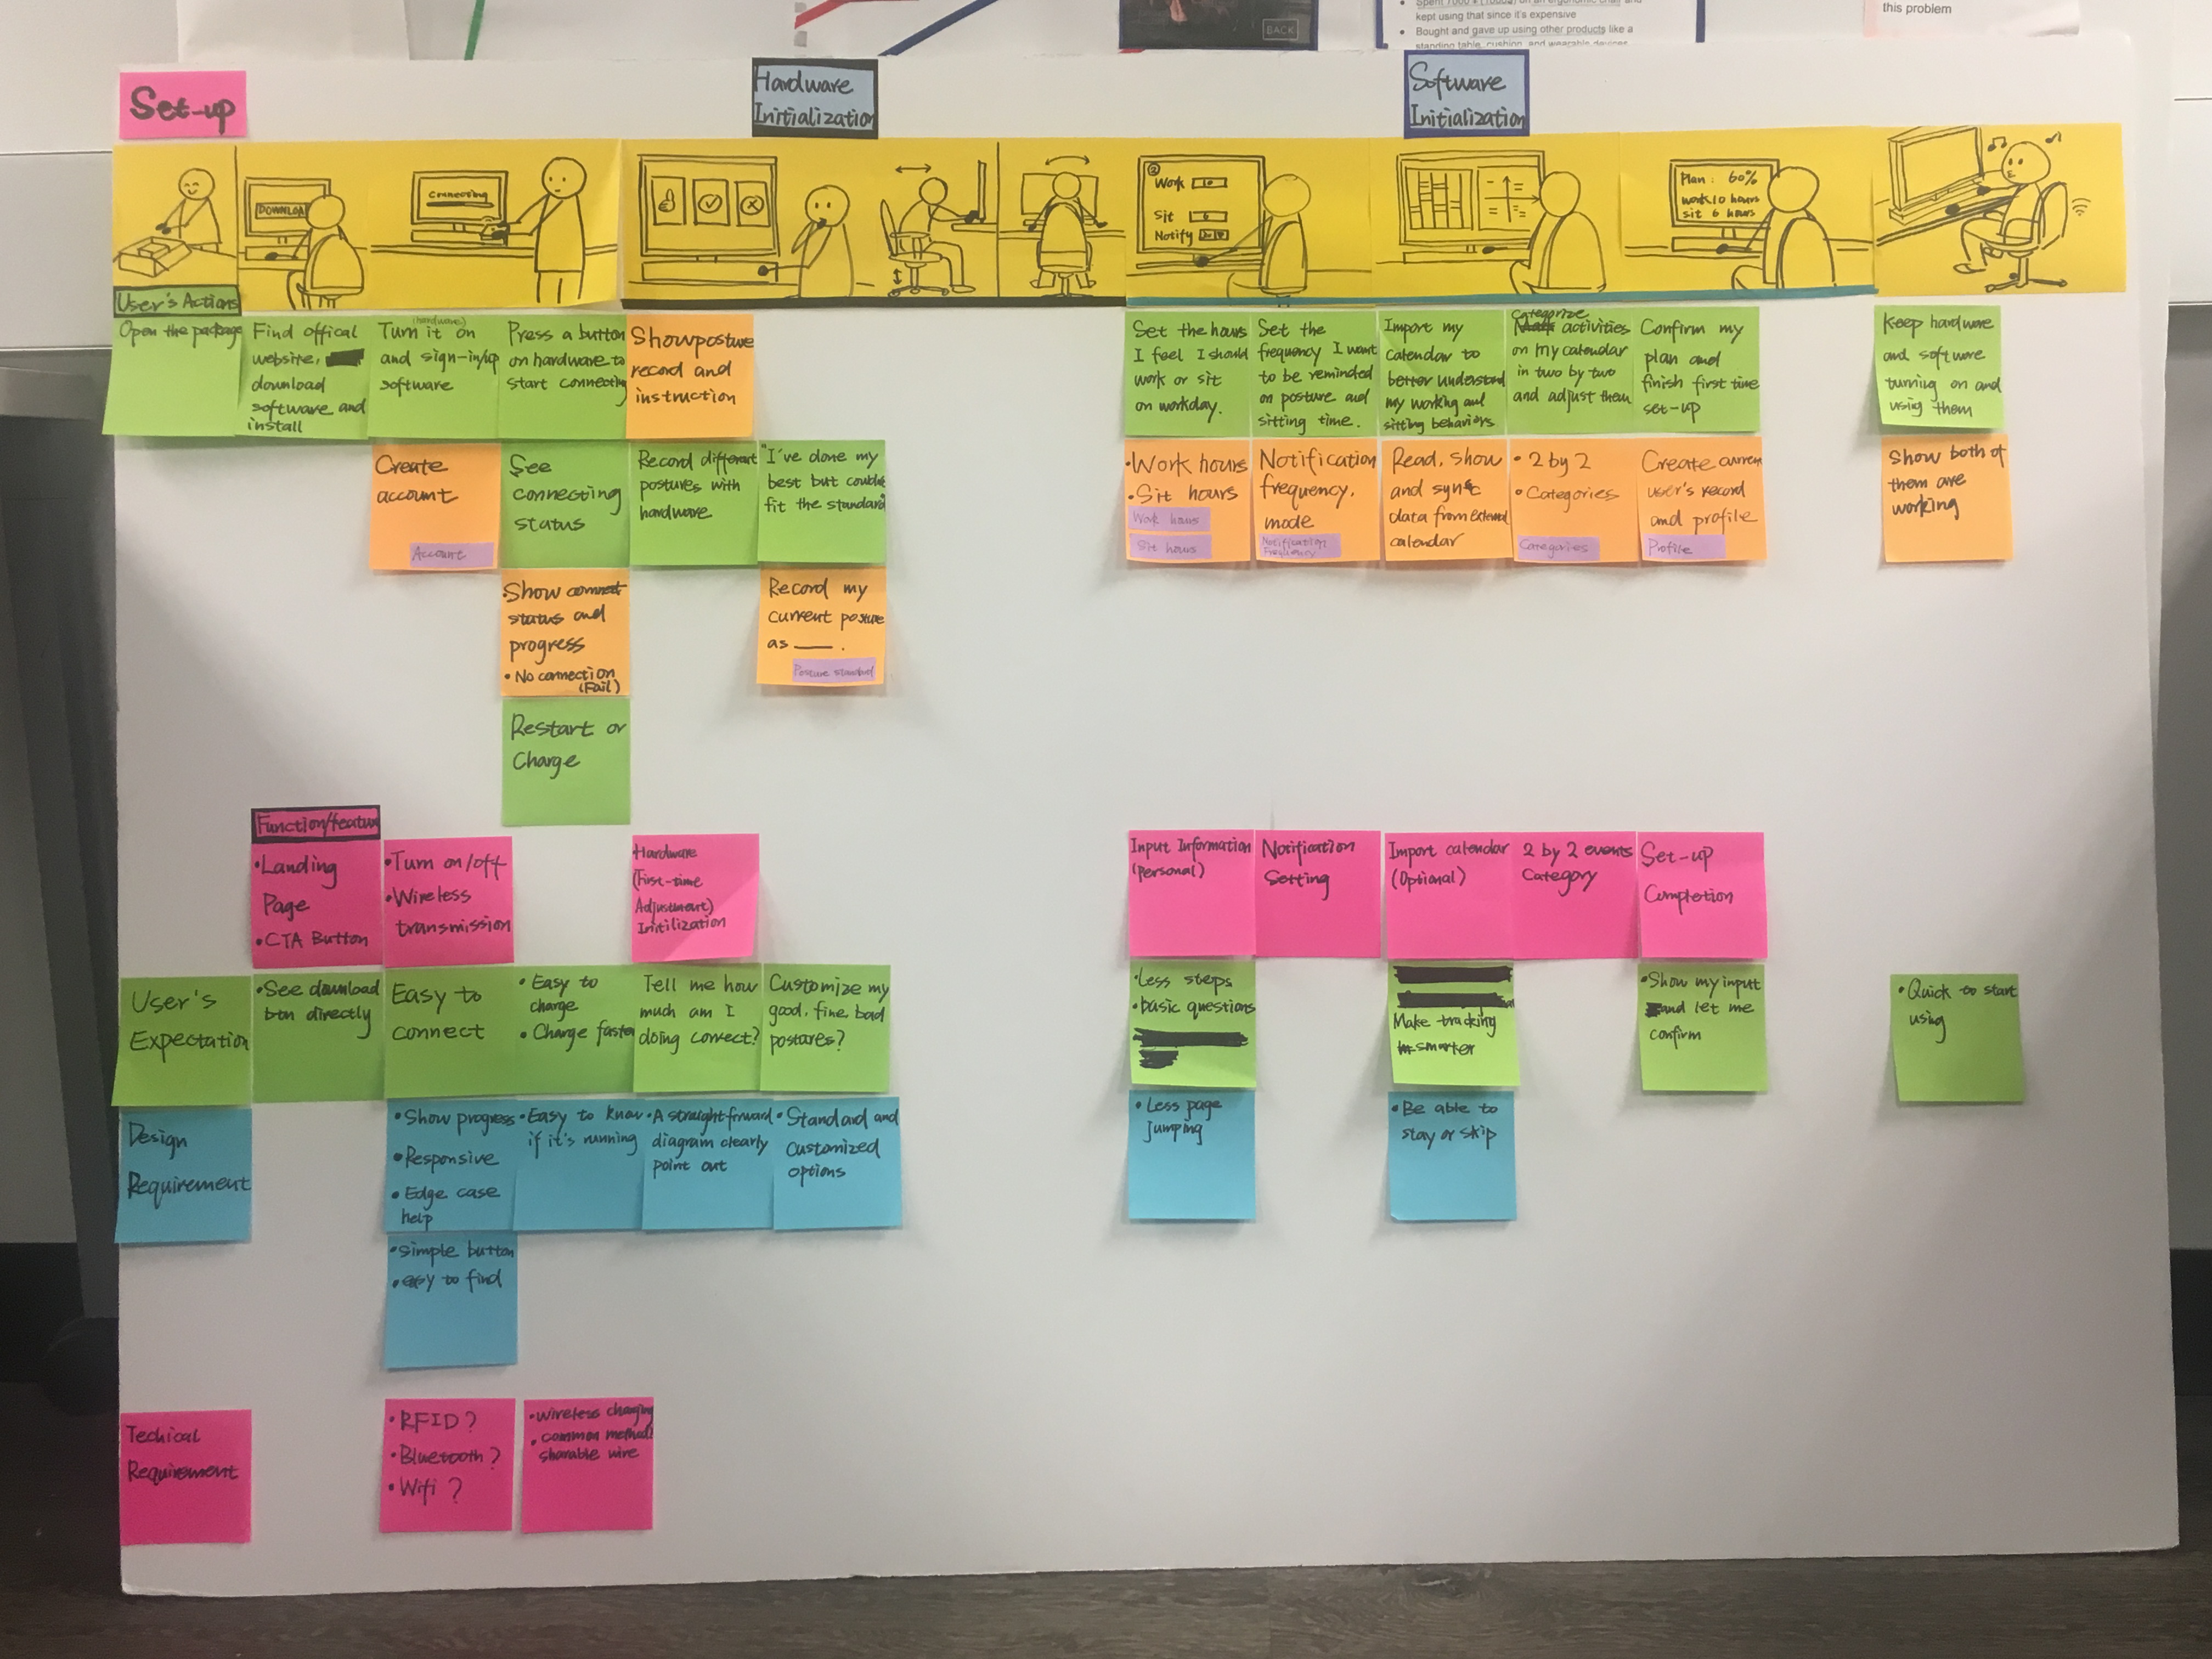 BACK
kept using that since it's expensive
Bought and gave up using other products like a
standing table, cushion, and wearable devices
this problem
Set-up
Hardware
Initialization
Software
Initialization
DOWNLOA
Connecting
Work
Sit
Notify
Plan: 60%
work 10 hours
sit 6 hours
User's Actions
Open the package
Find offical
website,
download
software and
install
(hardware)
Turn it on
and sign-in/up
software
Press a button
on hardware to
start connecting
Show posture
record and
instruction
Set the hours
I feel I should
work or sit
on workday.
Set the
frequency I want
to be reminded
on posture and
sitting time.
Import my
calendar to
better understand
my working and
sitting behaviors
Categorize
activities
on my calendar
in two by two
and adjust them
Confirm my
plan and
finish first time
set-up
Keep hardware
and software
turning on and
using them
Create
account
Account
See
connecting
status
Record different
postures with
hardware
"I've done my
best but couldn't
fit the standard"
• Work hours
• Sit hours
Work hours
Sit hours
Notification
frequency,
mode
Notification
Frequency
Read, show
and sync
data from external
calendar
• 2 by 2
• Categories
Categories
Create current
user's record
and profile
Profile
Show both of
them are
working
• Show connect
status and
progress
• No connection
(Fail)
Record my
current posture
as ___ .
Posture standard
Restart or
Charge
Function/featur
• Landing
Page
• CTA Button
• Turn on/off
• Wireless
transmission
Hardware
(First-time
Adjustment)
Initilization
Input Information
(Personal)
Notification
Setting
Import calendar
(Optional)
2 by 2 events
Category
Set-up
Completion
User's
Expectation
• See download
btn directly
Easy to
connect
• Easy to
charge
• Charge faster
Tell me how
much am I
doing correct?
Customize my
good, fine, bad
postures?
• Less steps
• basic questions
Make tracking
smarter
• Show my input
and let me
confirm
• Quick to start
using
Design
Requirement
• Show progress
• Responsive
• Edge case
help
• Easy to know
if it's running
• A straightforward
diagram clearly
point out
• Standard and
customized
options
• Less page
jumping
• Be able to
stay or skip
• Simple button
• easy to find
Techical
Requirement
• RFID?
• Bluetooth?
• Wifi?
• wireless charging
• common method:
sharable wire